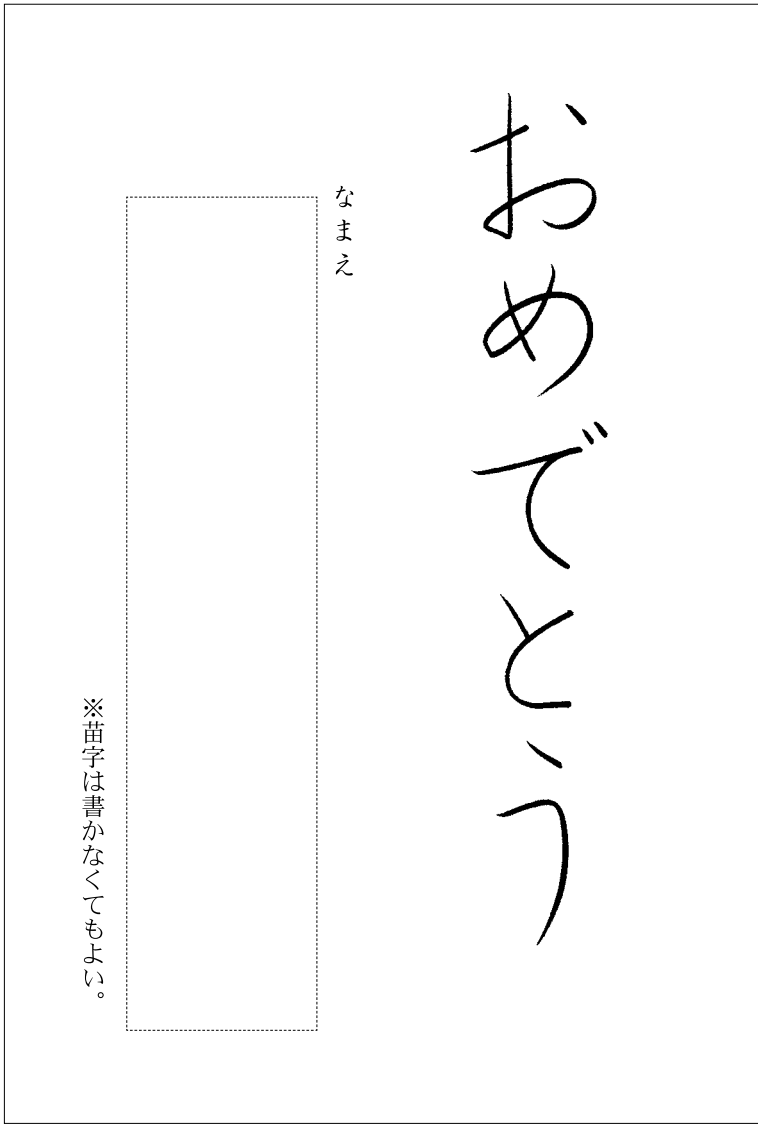 おめでとう
なまえ
※苗字は書かなくてもよい。